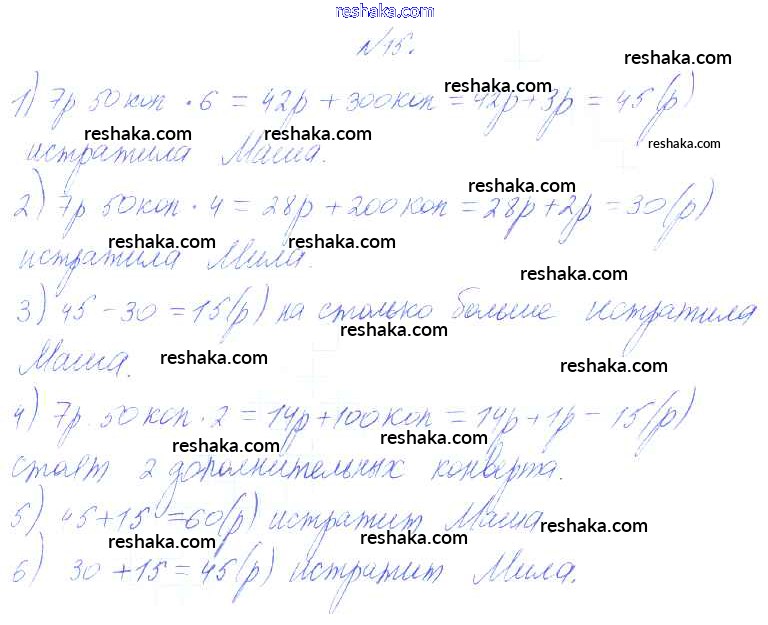 reshaka.com
№15.
reshaka.com
1) 7р 50коп · 6 = 42р + 300коп = 42р + 3р = 45(р)
reshaka.com
reshaka.com reshaka.com
истратила Маша.
reshaka.com
reshaka.com
2) 7р 50коп · 4 = 28р + 200коп = 28р + 2р = 30(р)
reshaka.com reshaka.com
истратила Мила.
reshaka.com
3) 45 - 30 = 15(р) на столько больше истратила
reshaka.com
Маша.
reshaka.com reshaka.com
4) 7р. 50коп · 2 = 14р + 100коп = 14р + 1р = 15(р)
reshaka.com reshaka.com
стоят 2 дополнительных конверта.
5) 45 + 15 = 60(р) истратит Маша
reshaka.com
reshaka.com reshaka.com
6) 30 + 15 = 45(р) истратит Мила.